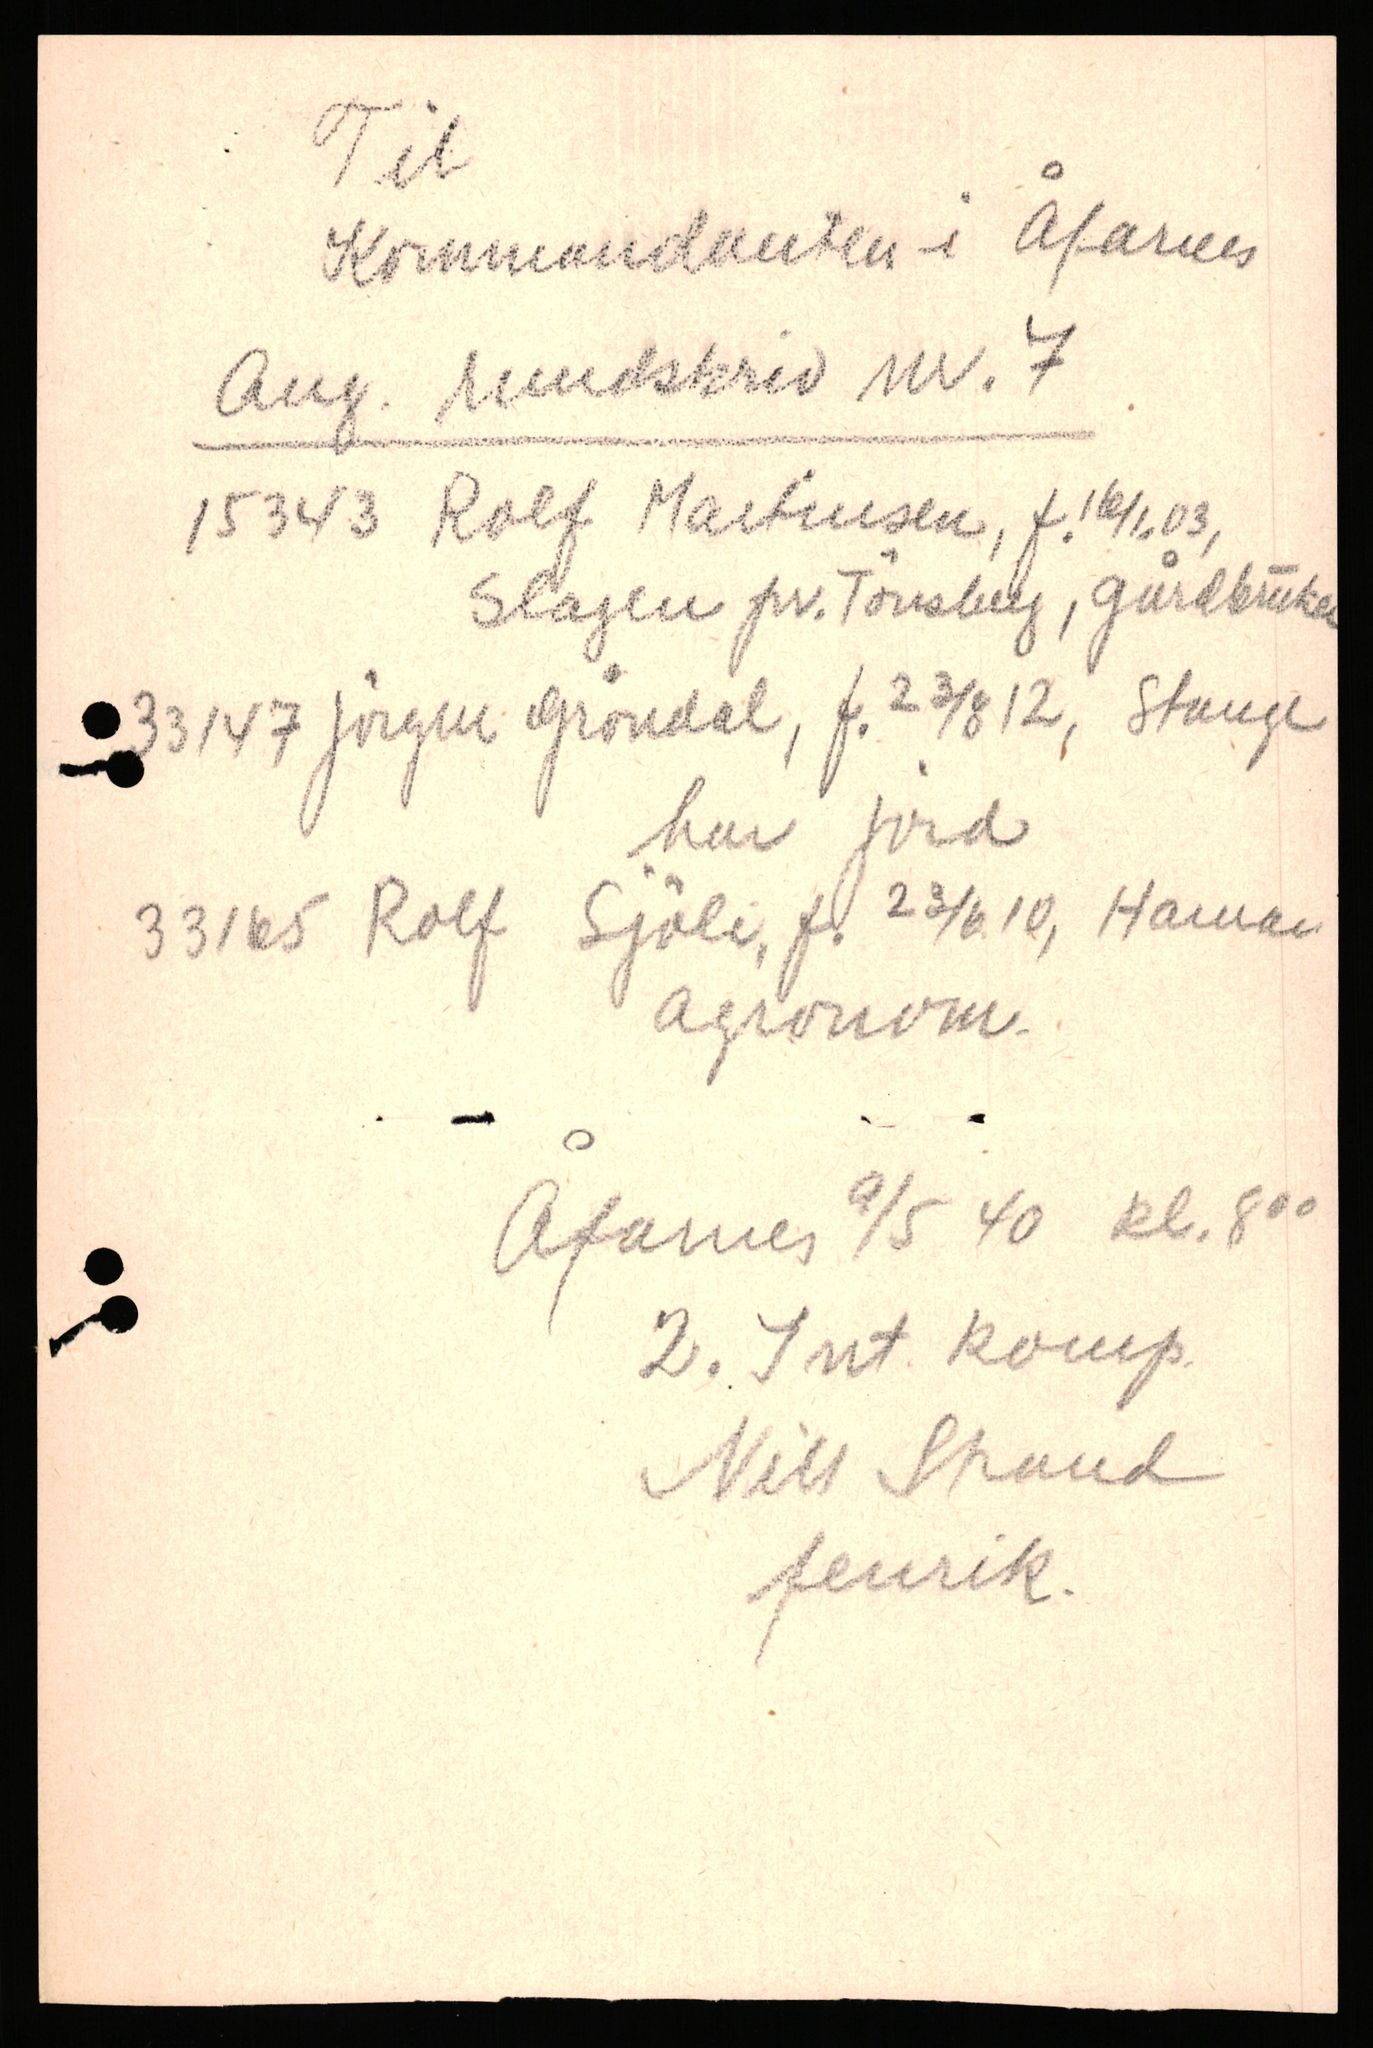 Til
Kommandanten i Åfarnes
Ang. rundskriv nr. 7
15343 Rolf Martinsen, f. 16/1.03,
Slagen pr. Tönsberg, gårdbruker
33147 Jörgen Gröndal, f. 23/8 12, Stange
har jord
33165 Rolf Sjöli, f. 23/6 10, Hamar
agronom.
Åfarnes 9/5 40 kl. 8⁰⁰
2. Int. komp.
Nils Strand
fenrik.